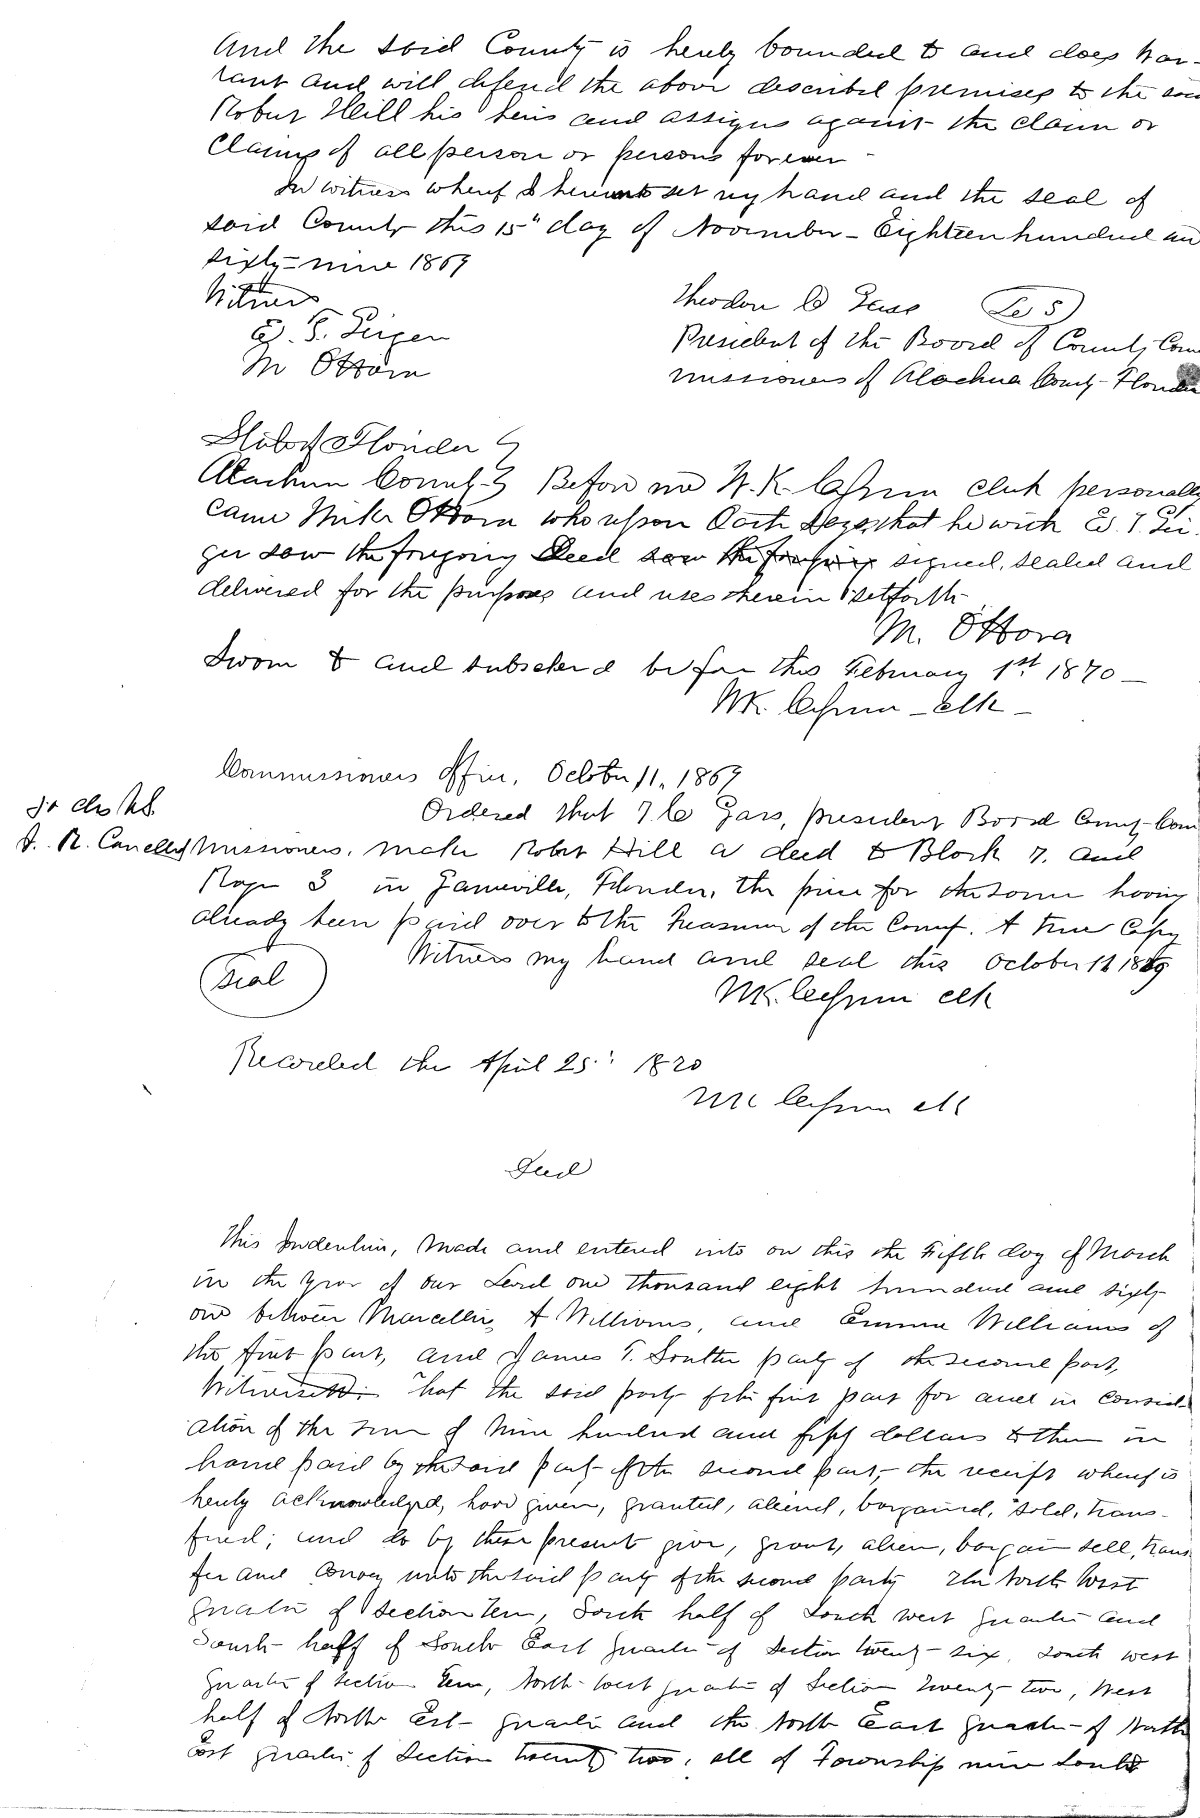 And the said County is hereby bounded to and does war-
rant and will defend the above described premises to the said
Robert Hill his heirs and assigns against the claim or
Claims of all person or persons forever -
In witness whereof I hereunto set my hand and the seal of
said County this 15" day of November - Eighteen hundred and
sixty-nine 1869
Witness
Theodore C Gass (L S)
E. T. Geiger
President of the Board of County Com
M Ottora
missioners of Alachua County - Florida
State of Florida
Alachua County Before me W. K. Cessna Clerk personally
came Mike Ottora who upon Oath says, that he with E. T. Gei-
ger saw the foregoing Deed saw the foregoing signed, sealed and
delivered for the purposes and uses therein setforth
M. Ottora
Sworn to and subscribed before this February 1st 1870 -
W.K. Cessna - clk -
Commissioners Office, October 11, 1869
Ordered that T. C Gass, president Board County Com
J. R. Cancelled missioners, make Robert Hill a deed to Block 7. and
Range 3 in Gainesville, Florida, the price for the same having
already been paid over to the Treasurer of the County. A true Copy
Witness my hand and seal this October 11 1869
Seal
W.K. Cessna clk
Recorded the April 25" 1870
W K Cessna clk
Deed
This Indenture, made and entered into on this the Fifth day of March
in the year of our Lord one thousand eight hundred and sixty
one between Marcellus A Williams, and Emma Williams of
the first part, and James T. Soutter party of the second part,
Witnesseth: That the said party of the first part for and in consid
ation of the sum of Nine hundred and fifty dollars to them in
hand paid by the said party of the second part, the receipt whereof is
hereby acknowledged, have given, granted, aliened, bargained, sold, trans-
fered; and do by these present give, grant, alien, bargain sell, trans
fer and convey unto the said party of the second party The North West
quarter of section Ten, South half of South west quarter and
South half of South East quarter of section twenty-six, south west
quarter of section Ten, North-west quarter of Section Twenty-two, West
half of North Est- quarter and the North East quarter of North
East quarter of Section twenty two, all of Township nine South